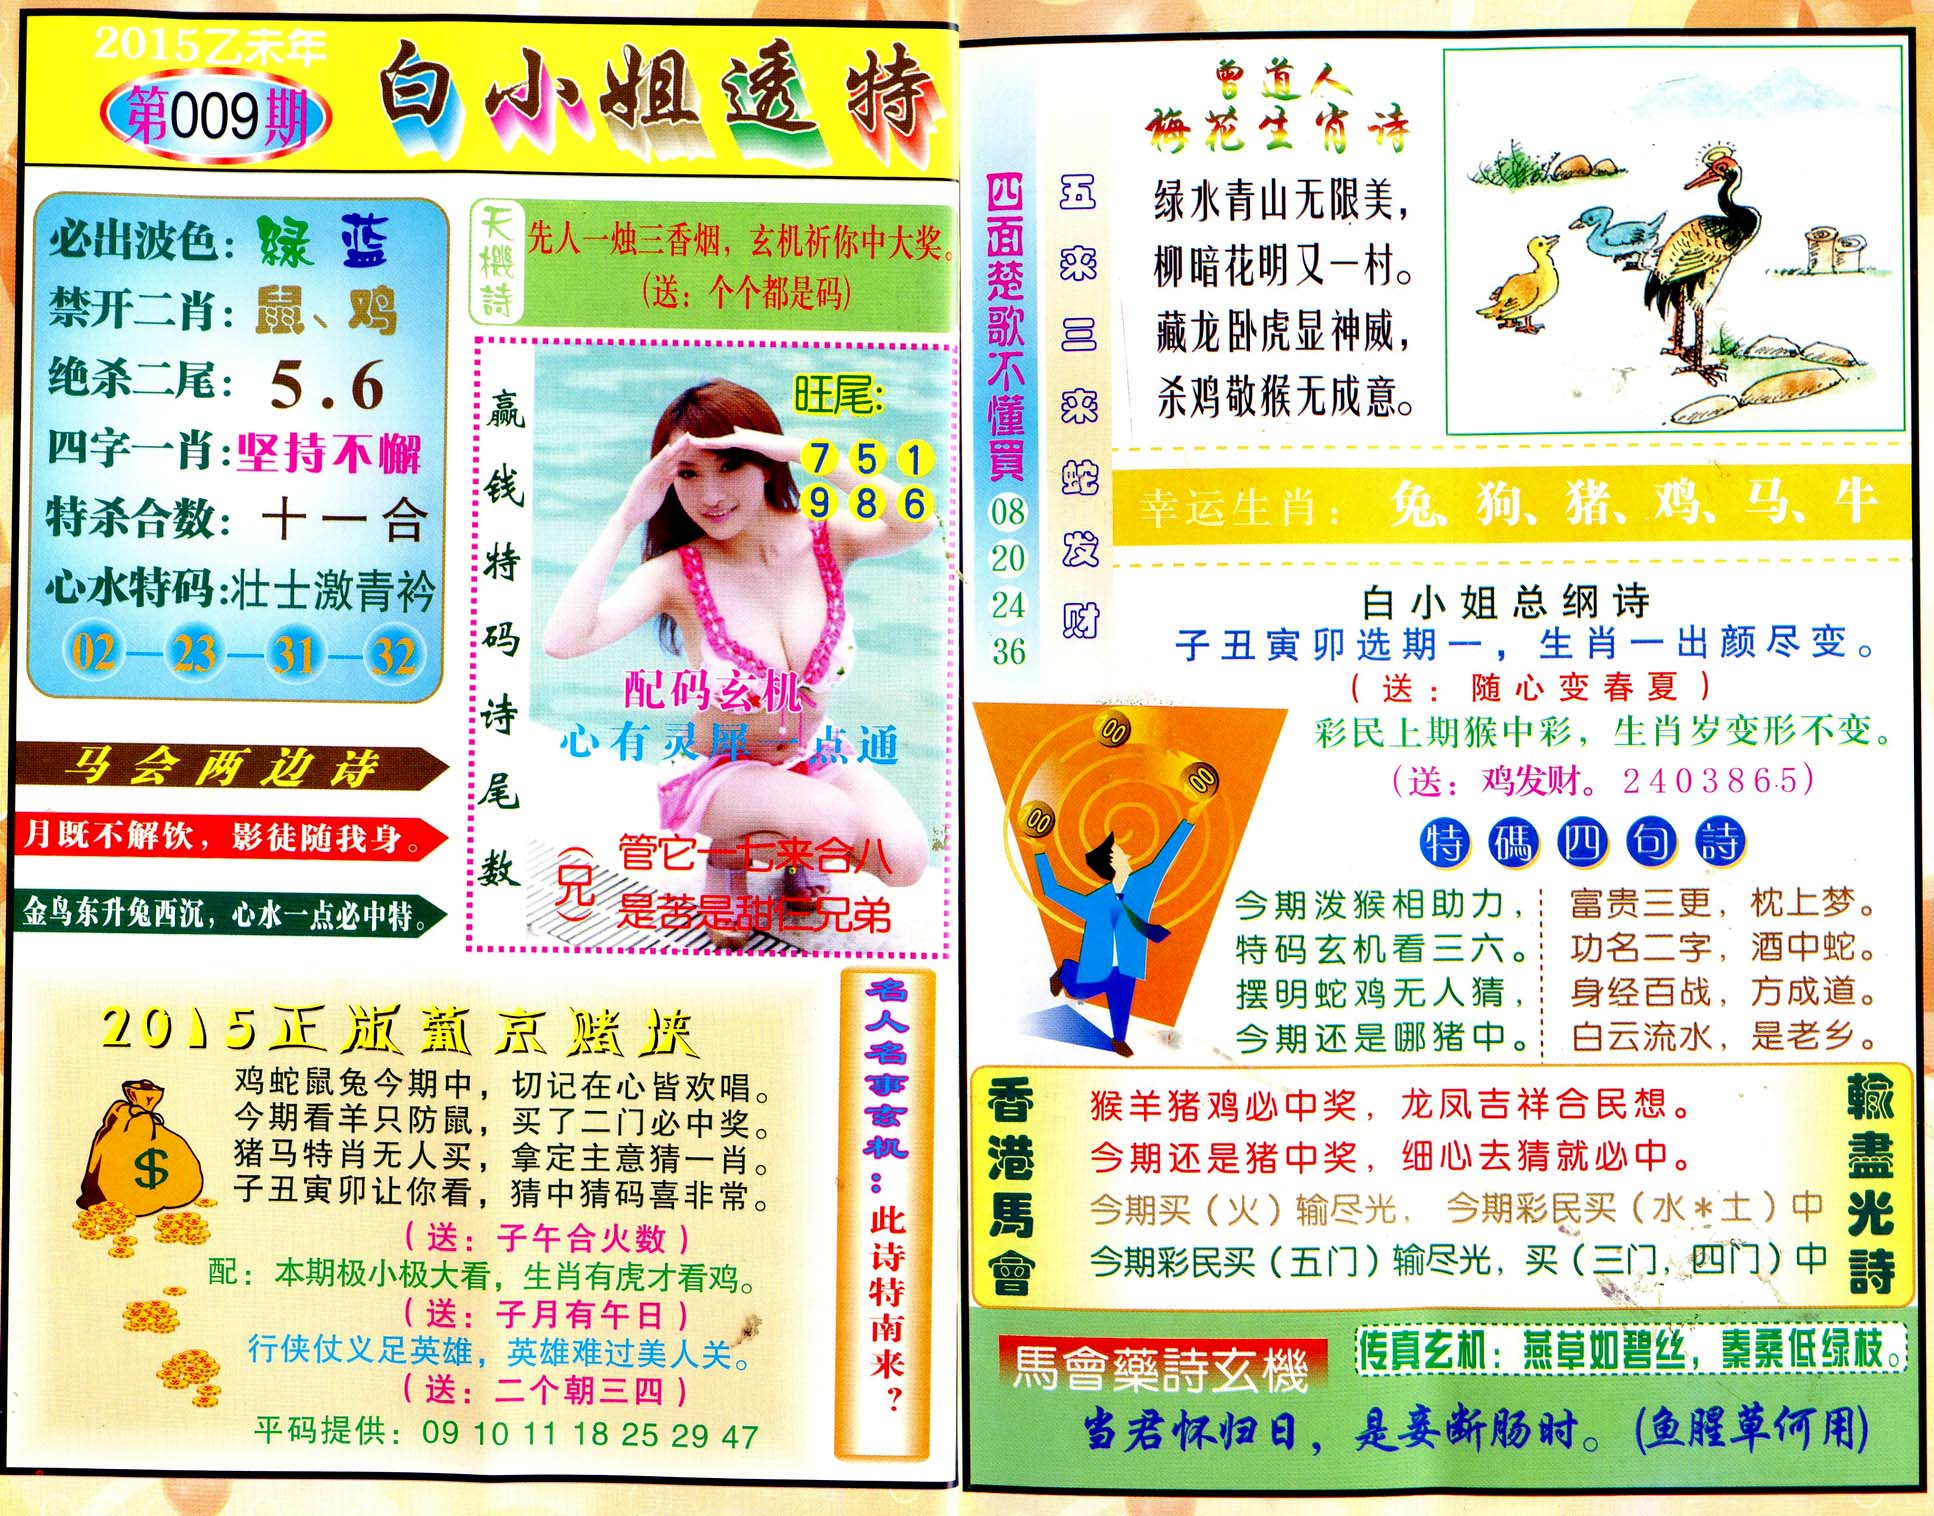 2015乙未年
第009期
白小姐透特
必出波色：绿 蓝
禁开二肖：鼠、鸡
绝杀二尾：5.6
四字一肖：坚持不懈
特杀合数：十一合
心水特码：壮士激青衿
02 23 31 32
马会两边诗
月既不解饮，影徒随我身。
金鸟东升兔西沉，心水一点必中特。
天機詩
先人一烛三香烟，玄机祈你中大奖。
（送：个个都是码）
赢钱特码诗尾数
旺尾：
7 5 1
9 8 6
配码玄机
心有灵犀一点通
（兄）
管它一七来合八
是苦是甜仨兄弟
2015正版葡京赌侠
鸡蛇鼠兔今期中，切记在心皆欢唱。
今期看羊只防鼠，买了二门必中奖。
猪马特肖无人买，拿定主意猜一肖。
子丑寅卯让你看，猜中猜码喜非常。
（送：子午合火数）
配：本期极小极大看，生肖有虎才看鸡。
（送：子月有午日）
行侠仗义足英雄，英雄难过美人关。
（送：二个朝三四）
平码提供：09 10 11 18 25 29 47
$
名人名事玄机：此诗特南来？
四面楚歌不懂買
08
20
24
36
五来三来蛇发财
曾道人
梅花生肖诗
绿水青山无限美，
柳暗花明又一村。
藏龙卧虎显神威，
杀鸡敬猴无成意。
幸运生肖：兔、狗、猪、鸡、马、牛
白小姐总纲诗
子丑寅卯选期一，生肖一出颜尽变。
（送：随心变春夏）
彩民上期猴中彩，生肖岁变形不变。
（送：鸡发财。2403865）
00
00
00
特碼四句詩
今期泼猴相助力，
特码玄机看三六。
摆明蛇鸡无人猜，
今期还是哪猪中。
富贵三更，枕上梦。
功名二字，酒中蛇。
身经百战，方成道。
白云流水，是老乡。
香港馬會
猴羊猪鸡必中奖，龙凤吉祥合民想。
今期还是猪中奖，细心去猜就必中。
今期买（火）输尽光，今期彩民买（水*土）中
今期彩民买（五门）输尽光，买（三门，四门）中
輸盡光詩
馬會藥詩玄機
传真玄机：燕草如碧丝，秦桑低绿枝。
当君怀归日，是妾断肠时。（鱼腥草何用）